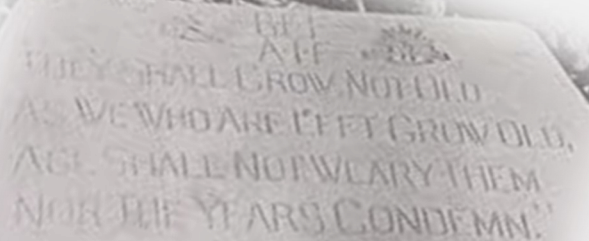 A·I·F
THEY SHALL GROW NOT OLD
AS WE WHO ARE LEFT GROW OLD,
AGE SHALL NOT WEARY THEM
NOR THE YEARS CONDEMN."